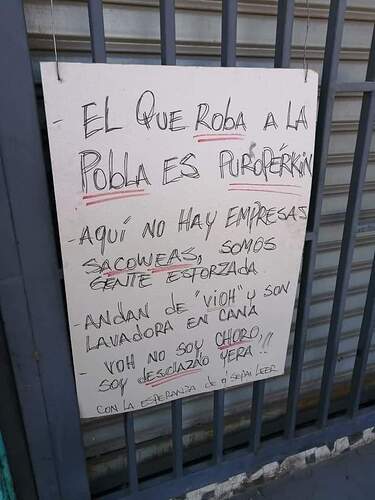 - EL QUE ROBA A LA
POBLA ES PUROPÉRKIN
- AQUÍ NO HAY EMPRESAS
SACOWEAS, SOMOS
GENTE ESFORZADA
- ANDAN DE "VIOH" Y SON
LAVADORA EN CANA
- VOH NO SOY CHORO,
SOY DESCLAZAO YERA!!
CON LA ESPERANZA DE Q' SEPAN LEER